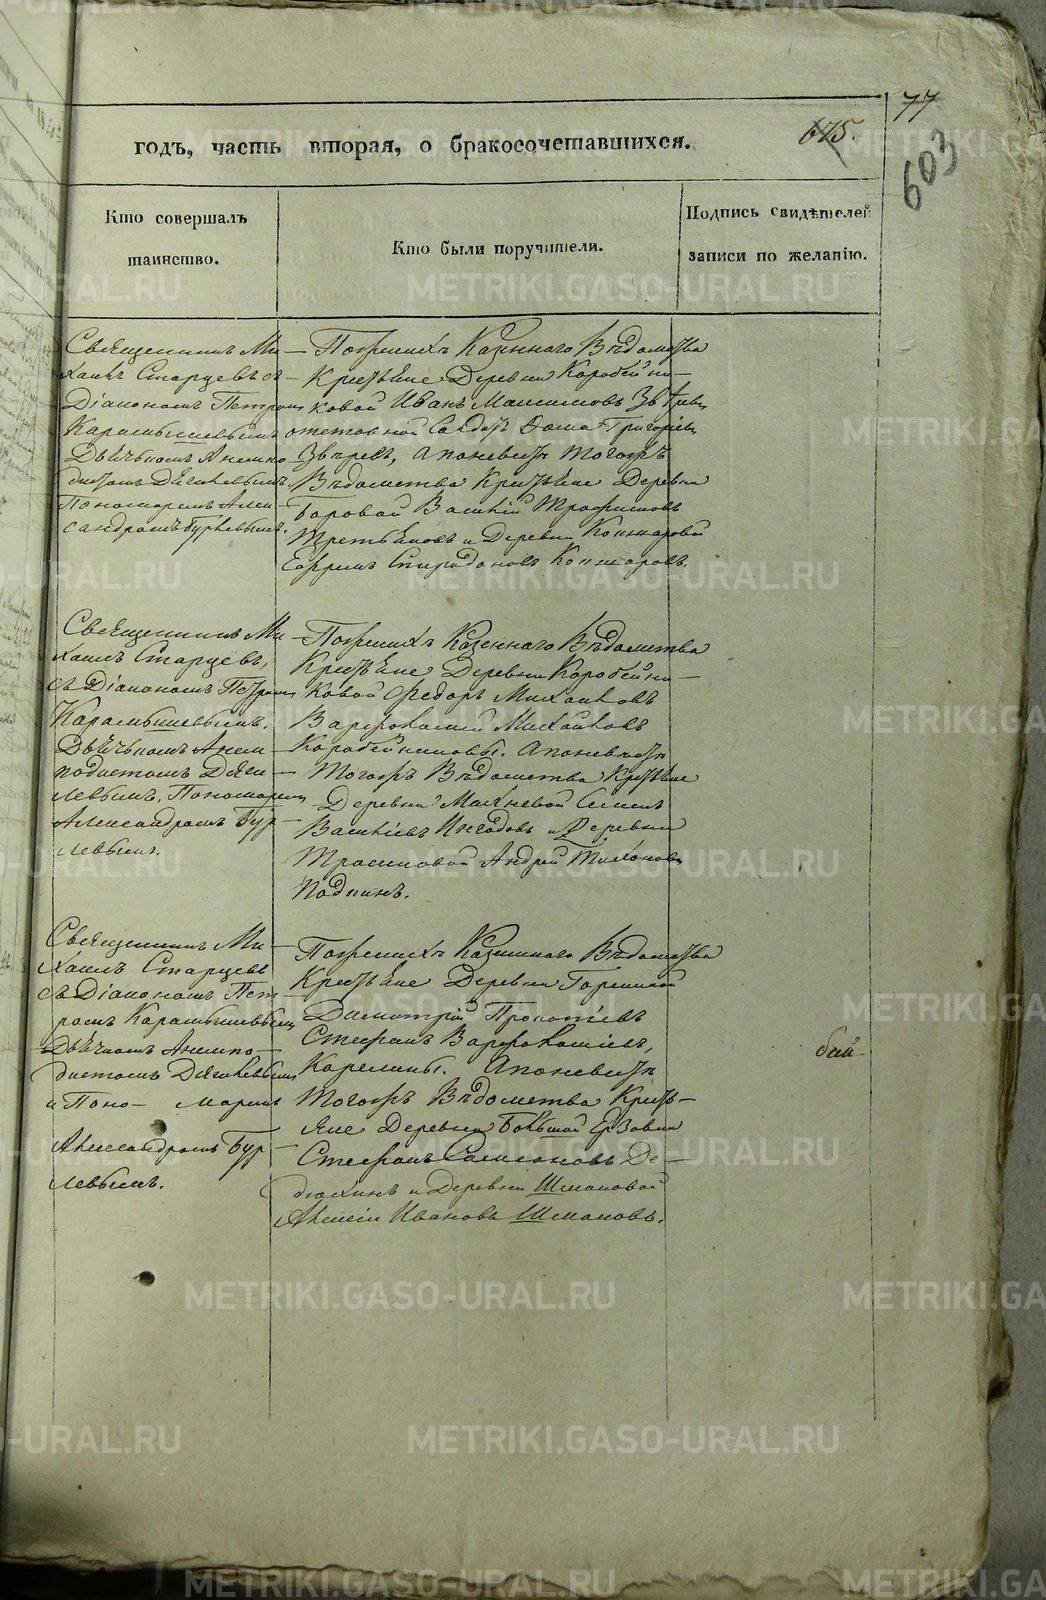 77
675.
603
годъ, часть вторая, о бракосочетавшихся.
Кто совершалъ
таинство.
Кто были поручители.
Подпись свидѣтелей
записи по желанію.
Священникъ Ми-
хаилъ Старцевъ съ
Діакономъ Петромъ
Карамышевымъ
Дьячькомъ Анемпо-
дистомъ Дягилевымъ.
Пономаремъ Алек-
сандромъ Бурлевымъ.
По женихѣ Казеннаго Вѣдомства
Крестьяне Деревни Коробейни-
ковой Иванъ Максимовъ
отставной Солдатъ Фома Григорьевъ
Звѣревъ, а по невѣстѣ тогожъ
Вѣдомства Крестьяне Деревни
Боровой Василій Трофимовъ
Третьяковъ и Деревни Кокшаровой
Ефремъ Спиридоновъ Кокшаровъ.
Священникъ Ми-
хаилъ Старцевъ,
съ Діакономъ Петромъ
Карамышевымъ.
Дьячькомъ Анем-
подистомъ Дяги-
левымъ, Пономаремъ
Александромъ Бур-
левымъ.
По женихѣ Казеннаго Вѣдомства
Крестьяне Деревни Коробейни-
ковой Федоръ Михайловъ
Варфоломей Михайловъ
Коробейниковы. а по невѣстѣ
тогожъ Вѣдомства Крестьяне
Деревни Махневой Семенъ
Васильевъ и Деревни
Трошковой Андрей Тихоновъ
Подкинъ.
Священникъ Ми-
хаилъ Старцевъ
съ Діакономъ Пет-
ромъ Карамышевымъ
Дьячкомъ Анемпо-
дистомъ Дягилевымъ
и Поно- маремъ
Александромъ Бур-
левымъ.
По женихѣ Казеннаго Вѣдомства
Крестьяне Деревни
Димитрій Прокопьевъ
Стефанъ Варфоломеевъ,
Карелины. а по невѣстѣ
тогожъ Вѣдомства Кресть-
яне Деревни Большой Ерзовки
Стефанъ Самсоновъ Де-
дюхинъ и Деревни Шмаковой
Алексѣй Ивановъ Шмаковъ.
METRIKI.GASO-URAL.RU